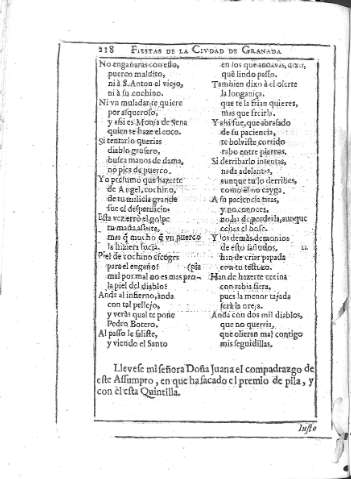 218 FIESTAS DE LA CIVDAD DE GRANADA
No engañaras con esso,
puerco maldito,
ni à S. Anton el viejo,
ni à su cochino.
Ni vn muladar te quiere
por asqueroso,
y assi es
quien se haze el coco.
Si tentarlo querias
diablo grosero,
busca manos de dama,
no pies de puerco.
Yo presumo que hazerte
de Angel, cochino,
de tu malicia grande
fue el desperdicio
el golpe
mas q̃ mucho q̃ vn puerco
la hiziera sucia.
Piel de cochino escoges
para el engaño?
mal por mal no es mas propia
la piel del diablo?
Anda al infierno, anda
con tal pellejo,
y veràs qual te pone
Pedro Botero.
Al passo le saliste,
y viendo el Santo
en los que andauas, dixo,
què lindo passo.
Tambien dixo à el oserte
la longaniça,
que te la frian quieres,
mas que freirla.
Y assi fue, que abrasado
de su paciencia,
te bolviste corrido
rabo entre piernas.
Si derribarlo intentas,
nada adelantas,
aunque tu lo derribes,
como èl no cayga.
A su paciencia tiras,
y no conoces,
aunque
eches el bofe.
Y los demàs demonios
de esto sañudos,
han de criar papada
con tu testuzo.
Han de hazerte cecina
con rabia fiera,
pues la menor tajada
serà la oreja.
Anda con dos mil diablos,
que no querria,
que olieran mal contigo
mis seguidillas.
Llevese mi señora Doña Juana el compadrazgo de
este Assumpto, en que ha sacado el premio de pila, y
con èl esta Quintilla.
Justo